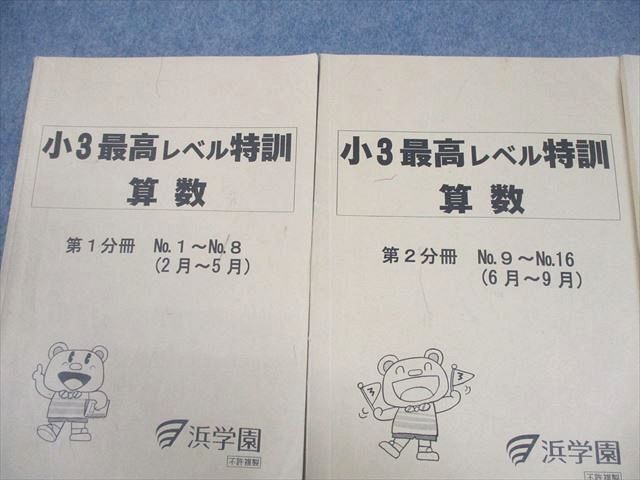 小3最高レベル特訓
算数
第1分冊 No.1~No.8
(2月~5月)
浜学園
不許複製
小3最高レベル特訓
算数
第2分冊 No.9~No.16
(6月~9月)
3
3
浜学園
不許複製